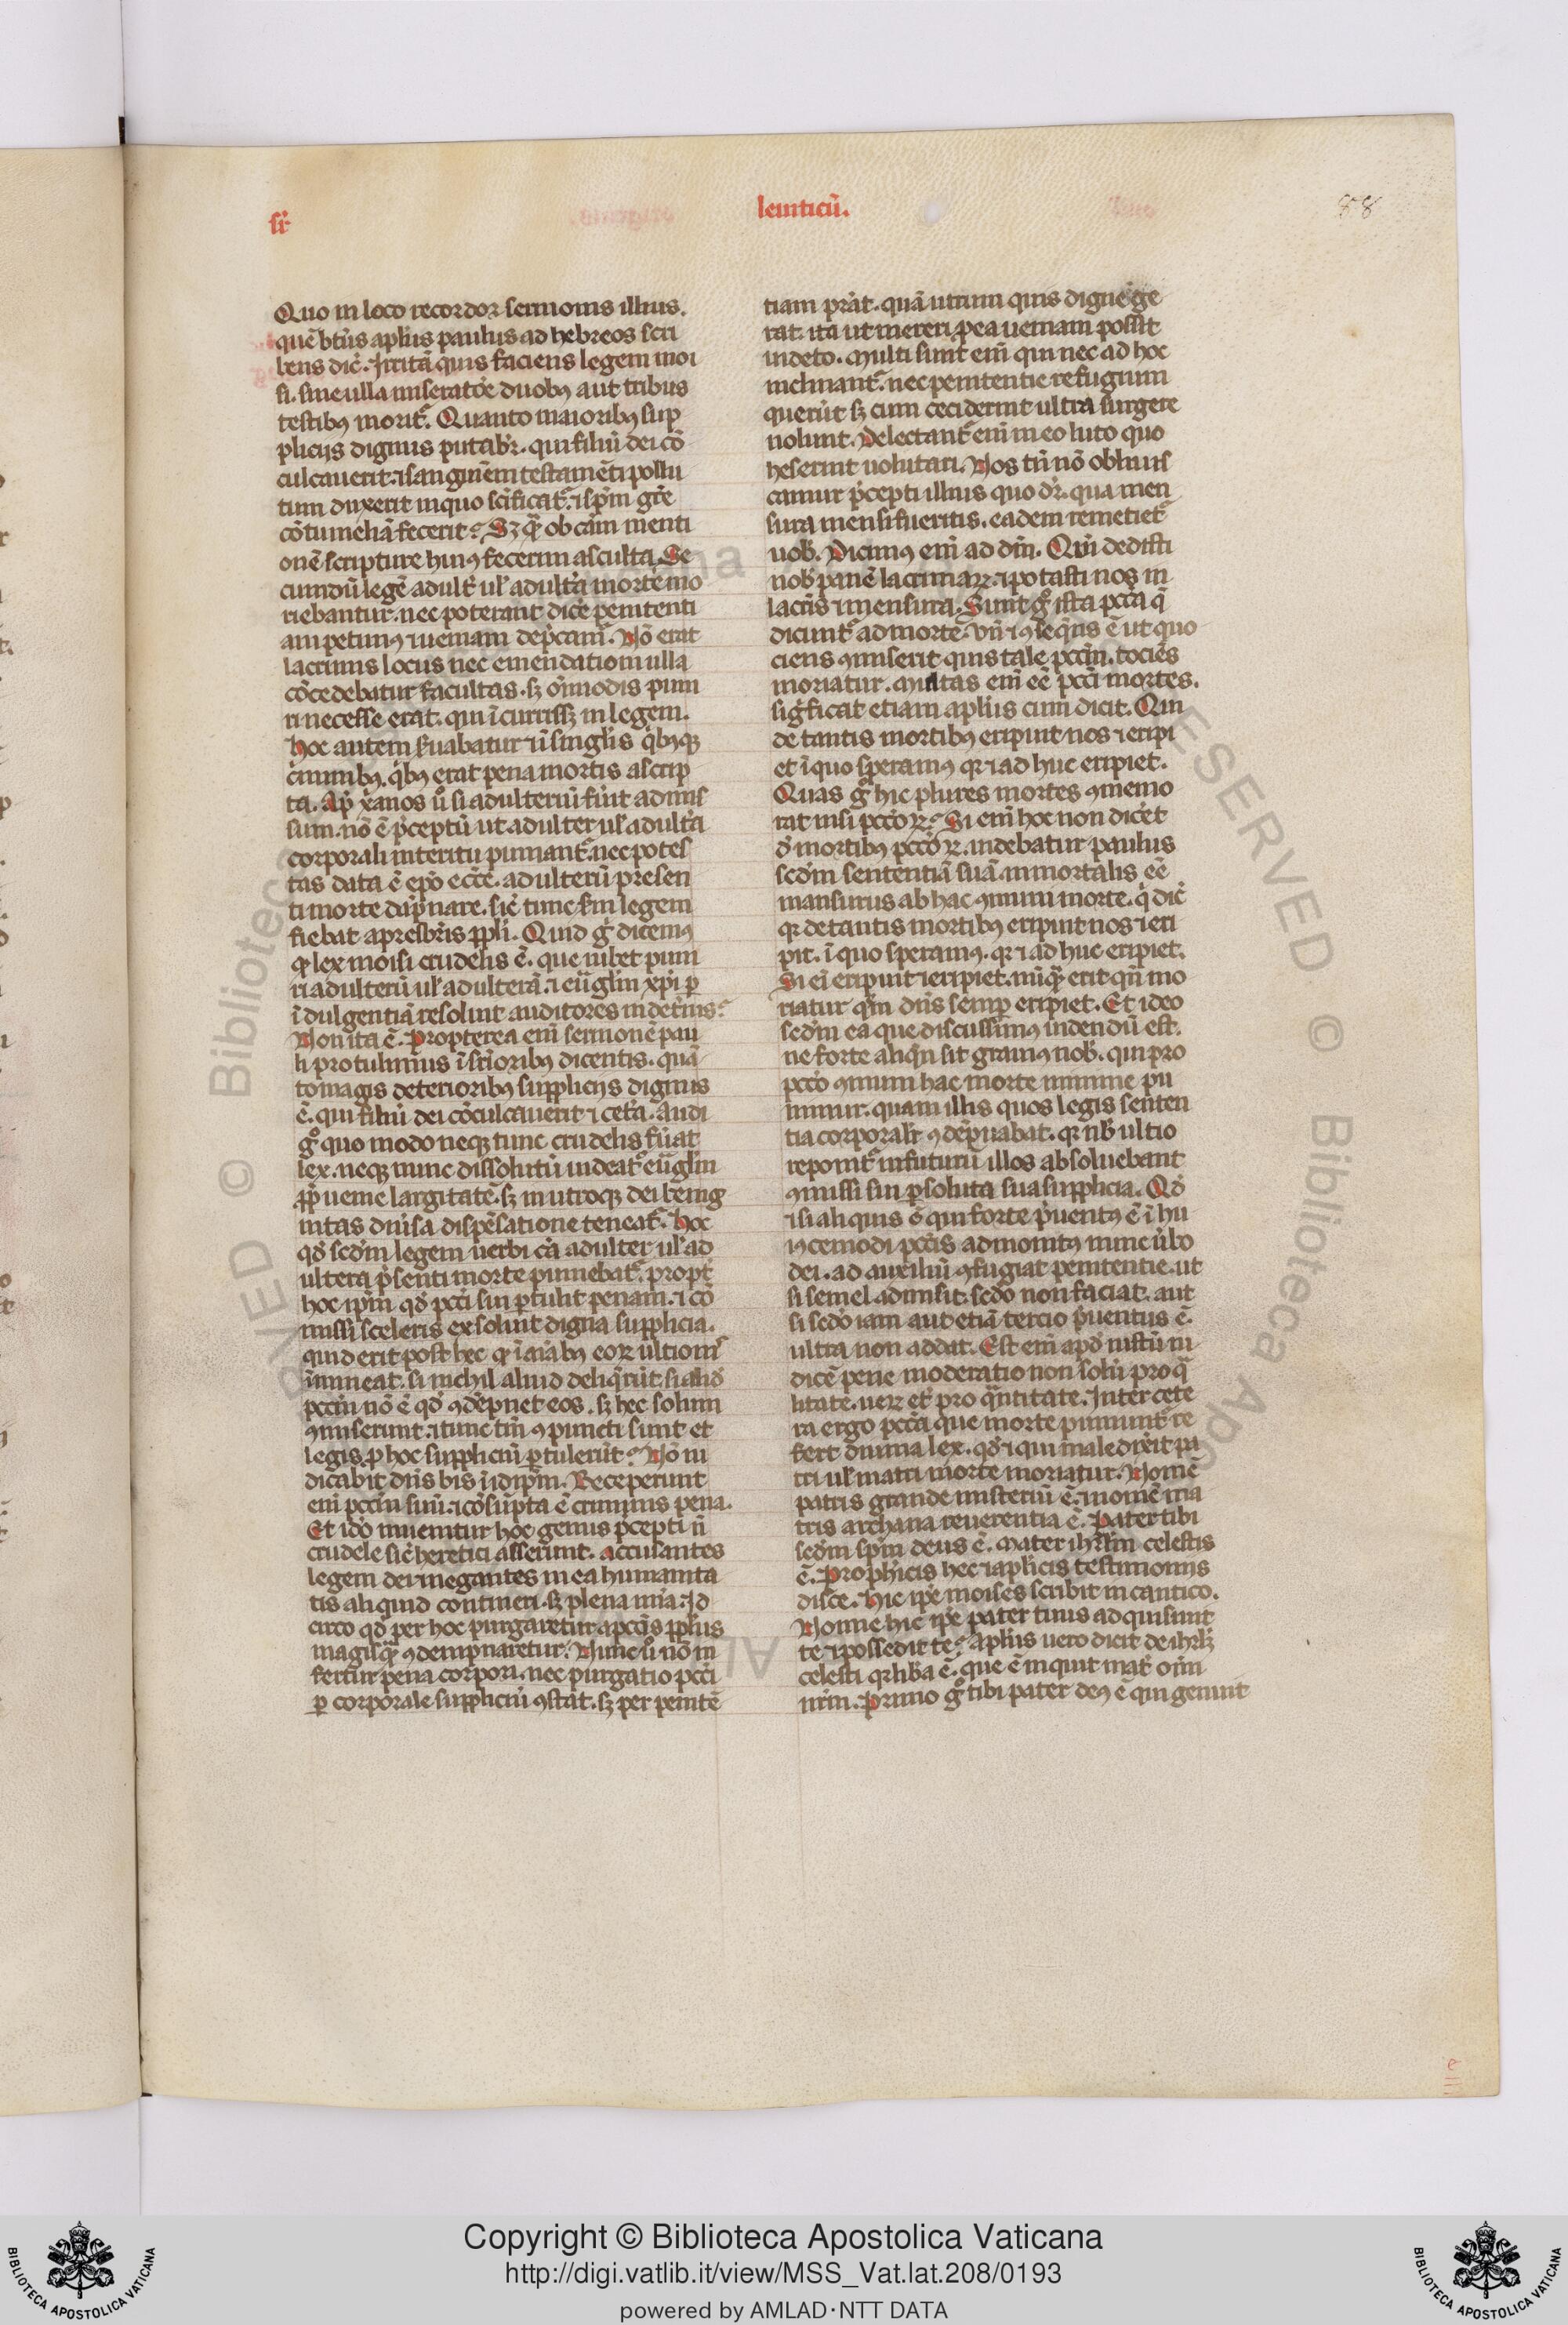 sr̄
leuiticū.
88
Quo in loco recordor sermonis illius.
quē bt̄us apl̄us paulus ad hebreos scri
bens dic̄. Irritā quis faciens legem moi
si. sine ulla miserat̄oe duobꝰ aut tribus
testibꝰ morit̄. Quanto maioribꝰ sup
pliciis dignus putabr̄. qui filiū dei cō
culcauerit. ⁊ sanguinēm testamēti pollu
tum duxerit in quo sc̄ificat̄. ⁊ sp̄m gr̄e
cōtumeliā fecerit? Sꝫ qr̄ ob cām menti
onē scripture huiꝰ fecerim asculta. Se
cundū legē adult̄ ul̄ adult̄a morte mo
riebantur. nec poterant dic̄e penitenti
am petimꝰ ⁊ ueniam dep̄cam̄. Nō erat
lacrimis locus nec emendationi ulla
cōcedebatur facultas. sꝫ om̄imodis puni
ri necesse erat. qui īcurrissꝫ in legem.
hoc autem s̄uabatur ⁊ ī singl̄is qͥbꝰqꝫ
c̄minibꝰ. qͥbꝰ erat pena mortis ascrip
ta. Ap̄ xp̄ianos ů si adulteriū fūit admis
sum. nō ē p̄ceptū ut adulter ul̄ adult̄a
corporali interitu puniant̄. nec potes
tas data ē ep̄o ecc̄e. adulterū presen
ti morte dāpnare. sic̄ tunc s̄m legem
fiebat a presbr̄is ppl̄i. Quid g̊ dicemꝰ
qꝫ lex moisi crudelis ē. que iubet puni
ri adulterū ul̄ adulterā. ⁊ euuᷓglm̄ xp̄i ꝑ
īdulgentiā resoluit auditores in det̄ius?
Non ita ē. Propterea eni̅ sermonē pau
li protulimus ī sr̄ioribꝰ dicentis. quā
to magis deterioribꝰ suppliciis dignus
ē. qui filiū dei cōculcauerit ⁊ cet̄a. Audi
g̊ quo modo neqꝫ tunc crudelis fūat
lex. neqꝫ nunc dissolutū uideat̄ euuᷓglm̄
ꝓp̄ uenie largitatē. sꝫ in utroqꝫ dei benig
nitas diuisa dispēsatione teneat̄. Hoc
qd̄ scd̄m legem uerbi cā adulter ul̄ ad
ultera p̄senti morte puniebat̄. propt̄
hoc ip̄m qd̄ pcc̄i sui ꝑtulit penam. ⁊ cō
missi sceleris exsoluit digna supplicia.
quid erit post hec qꝫ ī aīabꝰ eoꝝ ultioniˢ
īmineat. si nichil aliud deliq̄rūt. si aliud
pcc̄m nō ē qd̄ ꝯdēpnet eos. sꝫ hec solum
ꝯmiserunt. ⁊ tunc tm̄ ꝯpuncti sunt et
legis. ꝑ hoc suppliciū ꝑtulerūt? Nō iu
dicabit dn̄s bis īidip̄m. Receperunt
eni̅ pcc̄m suū. ⁊ cōsūpta ē criminis pena.
Et id̊o inuenitur hoc genus p̄cepti n̄
crudele sic̄ heretici asserunt. Accusantes
legem dei ⁊ negantes in ea humanita
tis aliquid contineri. sꝫ plena mīa. Id
circo qd̄ per hoc purgaretur a pcc̄is ppl̄us
magisqᷓꝫ ꝯdempnaretur. Nunc ů nō in
fertur pena corpori. nec purgatio pcc̄i
ꝑ corporale suppliciū ꝯstat. sꝫ per penitē
tiam prāt. quā utinn quis digne ge
rat. ita ut mereri pea ueniam possit
indeto. Multi sunt eni̅ qui nec ad hoc
inclinant̄. nec penitentie refugium
querūt sꝫ cum ceciderint ultra surgere
nolunt. Delectant̄ eni̅ in eo luto quo
heserint uolutari. Nos tn̄ nō obliuis
camur p̄cepti illius quo dr̄. qua men
sura mensi fueritis. eadem remetiet̄
uob̄. Dicimꝰ eni̅ ad dn̄m. Qm̄ dedisti
nob̄ panē lacrimaꝝ. ⁊ potasti nos in
lac̄ris ⁊ mensura. Sunt g̊ ista pcc̄a q̄
dicunt̄ ad mortē. Vn̄ ⁊ ꝯseq̄ns ē ut quo
ciens ꝯmiserit quis tale pcc̄m. tociēs
moriatur. Multas eni̅ ēē pcc̄i mortes.
sig̊ficat etiam apl̄us cum dicit. Qui
de tantis mortibꝰ eripuit nos ⁊ eripi
et ī quo speramꝰ qr̄ ⁊ ad huc eripiet.
Quas g̊ hic plures mortes ꝯmemo
rat nisi pcc̄oꝝ? Si eni̅ hoc non dicet
d̄ mortibꝰ pcc̄oꝝ. uidebatur paulus
scd̄m sententiā suā immortalis ēē
mansurus ab hac ꝯmuni morte. qͥ dic̄
qr̄ de tantis mortibꝰ eripuit nos ⁊ eri
pit. ī quo speramꝰ. qr̄ ⁊ ad huc eripiet.
Si eī eripuit ⁊ eripiet. nūqᷓ erit qn̄ mo
riatur qm̄ dn̄s semꝑ eripiet. Et ideo
scd̄m ea que discussimus uidendū est.
ne forte aliqn̄ sit grauiꝰ nob̄. qui pro
pcc̄o ꝯmuni hac morte minime pu
nimur. quam illis quos legis senten
tia corporalr̄ ꝯdēpnabat. qr̄ nl̄i ultio
reponit̄ in futurū illos absoluebant
ꝯmissi sui ꝑsoluta sua supplicia. Qd̄
⁊ si aliquis ē qui forte p̄uentꝰ ē ī hu
iꝰcemodi pcc̄is admonitꝰ nunc u̇bo
dei. ad auxiliū ꝯfugiat penitentie. ut
si semel admisit. scd̊o non faciat. aut
si scd̊o iam aut etiā tercio p̄uentus ē.
ultra non addat. Est eni̅ apd̄ iustū iu
dicē pene moderatio non solū pro qᷓ
litate. ueꝝ et̄ pro qᷓntitate. Inter cete
ra ergo pcc̄a que morte puniunt̄ re
fert diuina lex. qd̄ ⁊ qui maledixit pa
tri ul̄ matri morte moriatur. Nomē
patris grande misteriū ē. ⁊ nomē ma
tris archana reuerentia ē. Pater tibi
scd̄m sp̄m deus ē. Mater ihrl̄m celestis
ē. Prophicis hec ⁊ apl̄icis testimoniis
disce. Hic ip̄e moises scribit in cantico.
Nonne hic ip̄e pater tuus adquisiuit
te ⁊ possedit te? Apl̄us uero dicit de ihrl̄ꝫ
celesti qr̄ lib̄a ē. que ē inquit mat̄ om̄i
nr̄m. Primo g̊ tibi pater deꝰ ē qui genuit
Copyright © Biblioteca Apostolica Vaticana
http://digi.vatlib.it/view/MSS_Vat.lat.208/0193
powered by AMLAD·NTT DATA